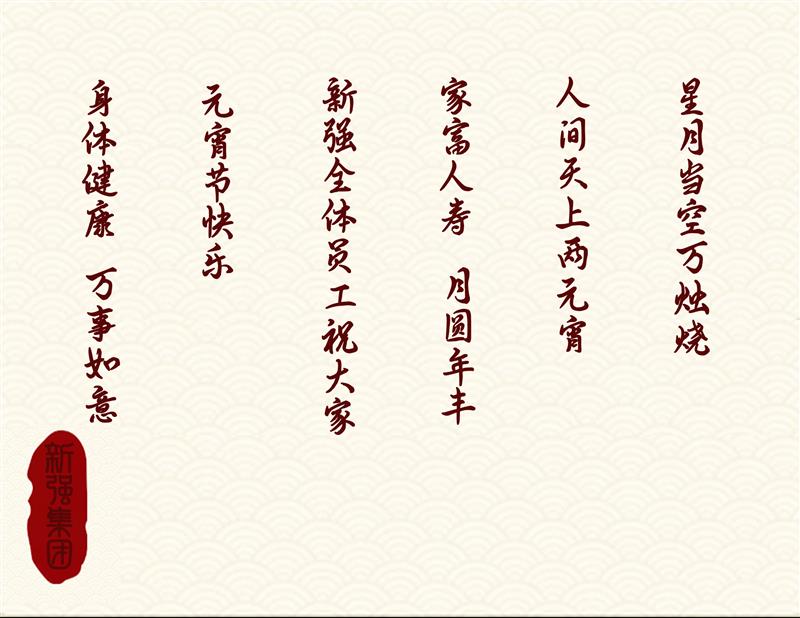 星月当空万烛烧
人间天上两元宵
家富人寿 月圆年丰
新强全体员工祝大家
元宵节快乐
身体健康 万事如意
新强集团